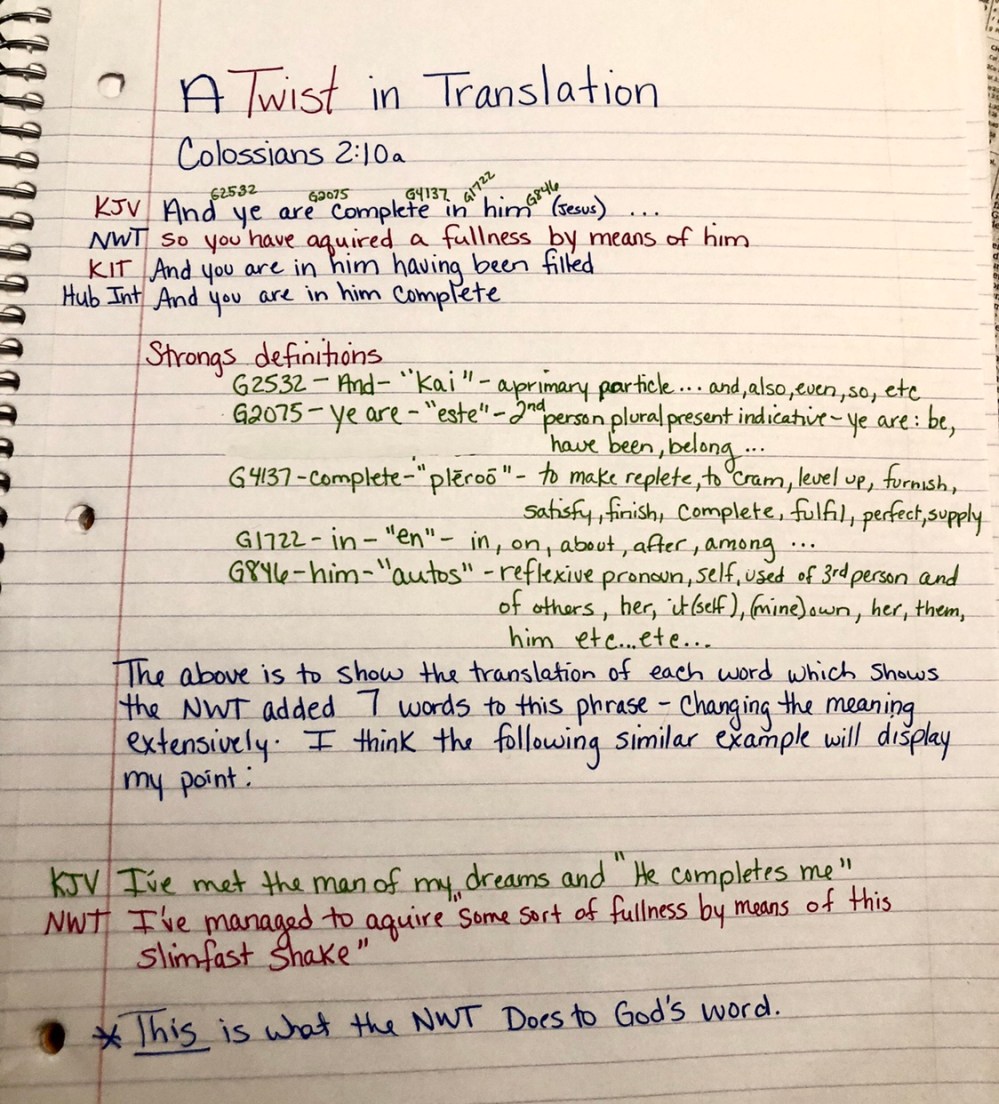 A Twist in Translation
Colossians 2:10a
G2532 G2075 G4137 G1722 G846
KJV And ye are complete in him (Jesus) ...
NWT so you have aquired a fullness by means of him
KIT And you are in him having been filled
Hub Int And you are in him complete
Strongs definitions
G2532 - And - "Kai" - a primary particle ... and, also, even, so, etc
G2075 - ye are - "este" - 2nd person plural present indicative - ye are: be,
have been, belong ...
G4137 - complete - "plēroō" - to make replete, to cram, level up, furnish,
satisfy, finish, complete, fulfil, perfect, supply
G1722 - in - "en" - in, on, about, after, among ...
G846 - him - "autos" - reflexive pronoun, self, used of 3rd person and
of others, her, it(self), (mine) own, her, them,
him etc...etc...
The above is to show the translation of each word which shows
the NWT added 7 words to this phrase - Changing the meaning
extensively. I think the following similar example will display
my point:
KJV I've met the man of my dreams and "He completes me"
NWT I've managed to aquire "some sort of fullness by means of this
slimfast shake"
* This is what the NWT Does to God's word.